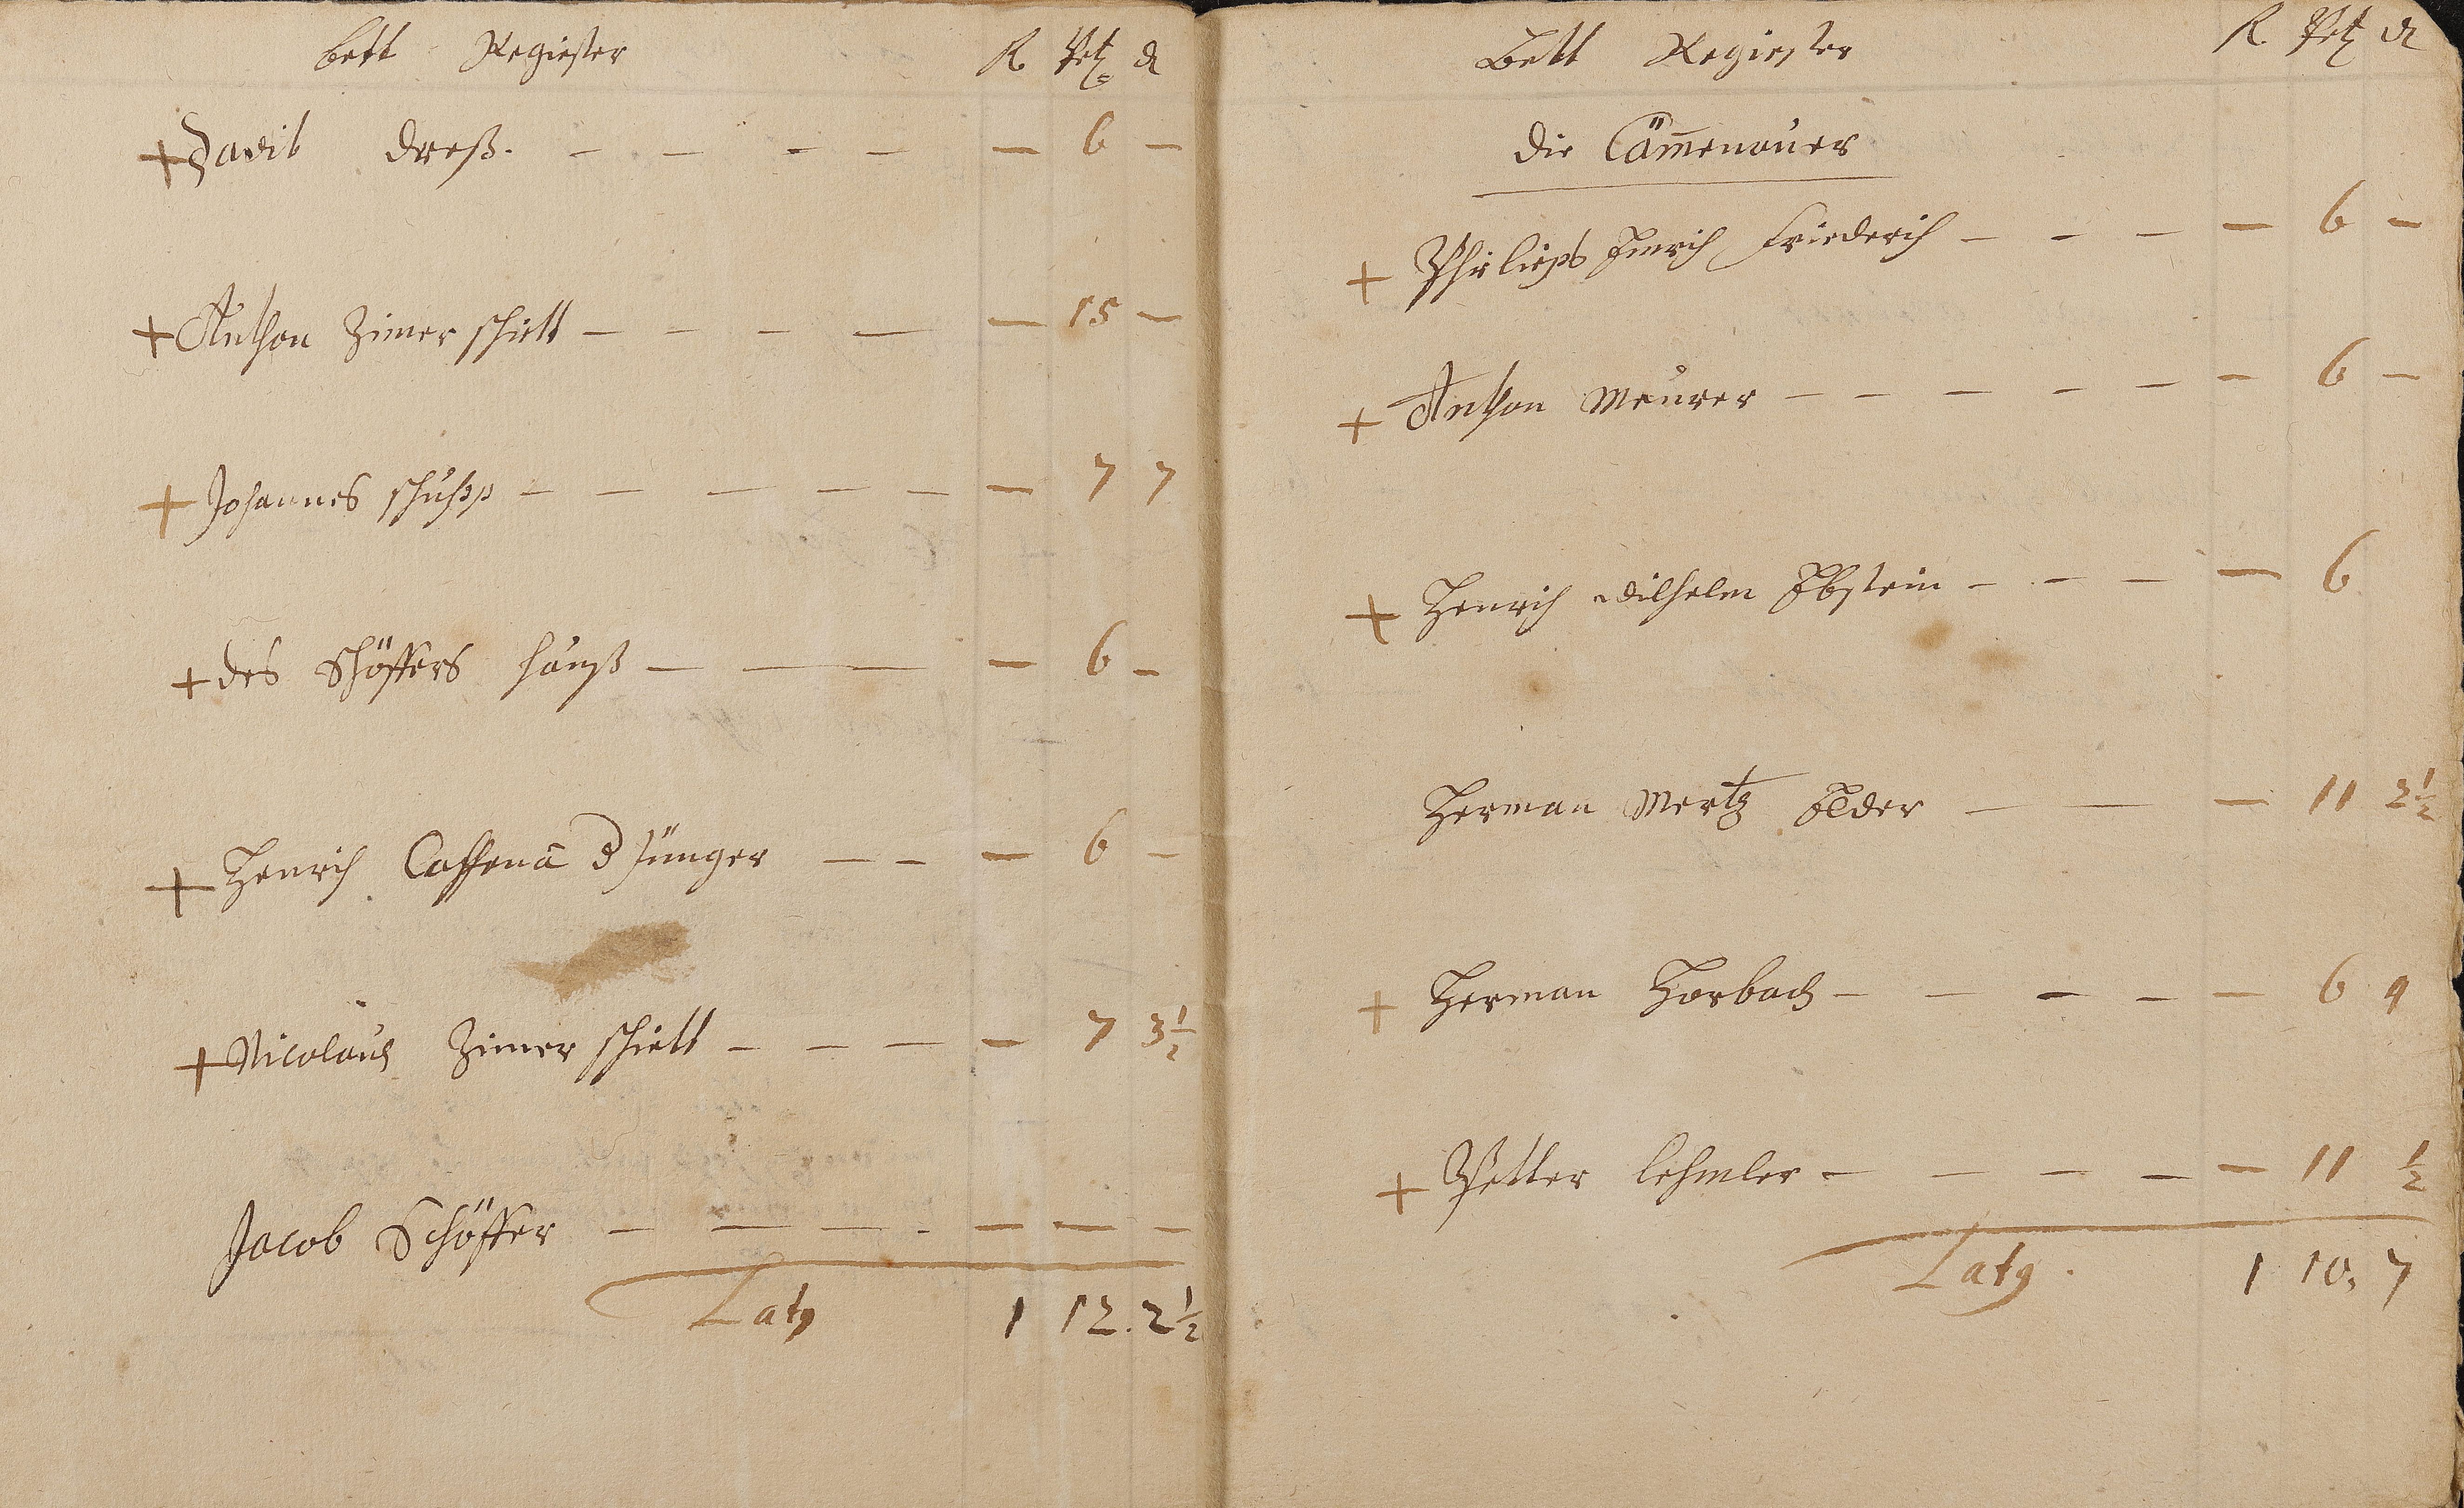 bett Regiester R Petz d
+ David Dreß. - - - - - 6 -
+ Anthon Zimerschiett - - - - - 15 -
+ Johannes schupp - - - - - - 7 7
+ des Schöffers hauß - - - - 6 -
+ Henrich Cassenā d jünger - - - 6 -
+ Nicolaus Zimerschiett - - - - 7 3½
Jacob Schöffer - - - - - - -
Latg 1 12. 2½
Bett Regiester R Petz d
Die Cäm̄enauer
+ Philieps Henrich Friederich - - - - 6 -
+ Anthon Meurer - - - - - - 6 -
+ Henrich Wilhelm Ebstein - - - - 6
Herman Mertz Elder - - - 11 2½
+ Herman Horbach - - - - - 6 4
+ Petter lehmler - - - - - 11 ½
Latg. 1 10, 7